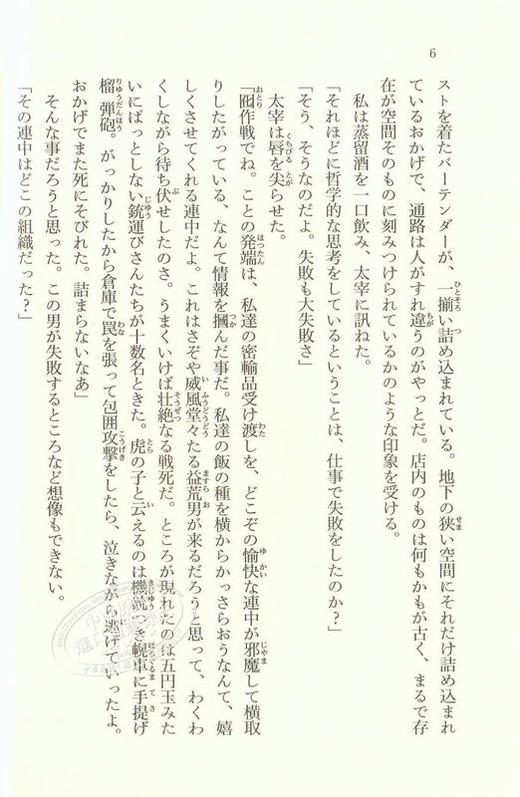 6
ストを着たバーテンダーが、一揃い詰め込まれている。地下の狭い空間にそれだけ詰め込まれ
ているおかげで、通路は人がすれ違うのがやっとだ。店内のものは何もかもが古く、まるで存
在が空間そのものに刻みつけられているかのような印象を受ける。
私は蒸留酒を一口飲み、太宰に訊ねた。
「それほどに哲学的な思考をしているということは、仕事で失敗をしたのか?」
「そう、そうなのだよ。失敗も大失敗さ」
太宰は唇を尖らせた。
「囮作戦でね。ことの発端は、私達の密輸品受け渡しを、どこぞの愉快な連中が邪魔して横取
りしたがっている、なんて情報を摑んだ事だ。私達の飯の種を横からかっさらおうなんて、嬉
しくさせてくれる連中だよ。これはさぞや威風堂々たる益荒男が来るだろうと思って、わくわ
くしながら待ち伏せしたのさ。うまくいけば壮絶なる戦死だ。ところが現れたのは五円玉みた
いにぱっとしない銃運びさんたちが十数名ときた。虎の子と云えるのは機銃つき幌車に手提げ
榴弾砲。がっかりしたから倉庫で罠を張って包囲攻撃をしたら、泣きながら逃げていったよ。
おかげでまた死にそびれた。詰まらないなあ」
そんな事だろうと思った。この男が失敗するところなど想像もできない。
「その連中はどこの組織だった?」